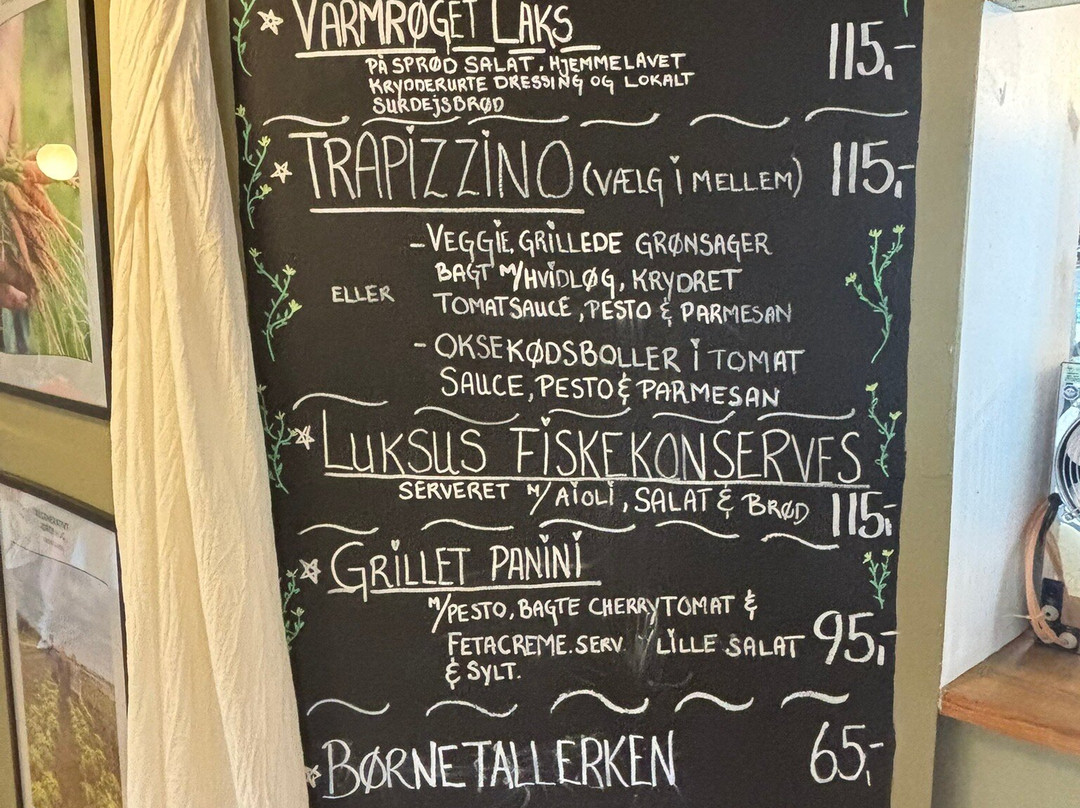 VARMRØGET LAKS 115,-
PÅ SPRØD SALAT, HJEMMELAVET
KRYDDERURTE DRESSING OG LOKALT
SURDEJSBRØD
TRAPIZZINO (VÆLG I MELLEM) 115,-
- VEGGIE, GRILLEDE GRØNSAGER
BAGT M/HVIDLØG, KRYDRET
ELLER
TOMATSAUCE, PESTO & PARMESAN
- OKSEKØDSBOLLER I TOMAT
SAUCE, PESTO & PARMESAN
LUKSUS FISKEKONSERVES
SERVERET M/AIOLI, SALAT & BRØD 115,-
GRILLET PANINI
M/PESTO, BAGTE CHERRYTOMAT &
FETACREME. SERV. LILLE SALAT 95,-
& SYLT.
BØRNETALLERKEN 65,-